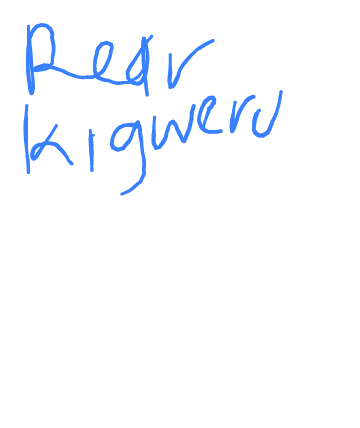 Rear
kigweru